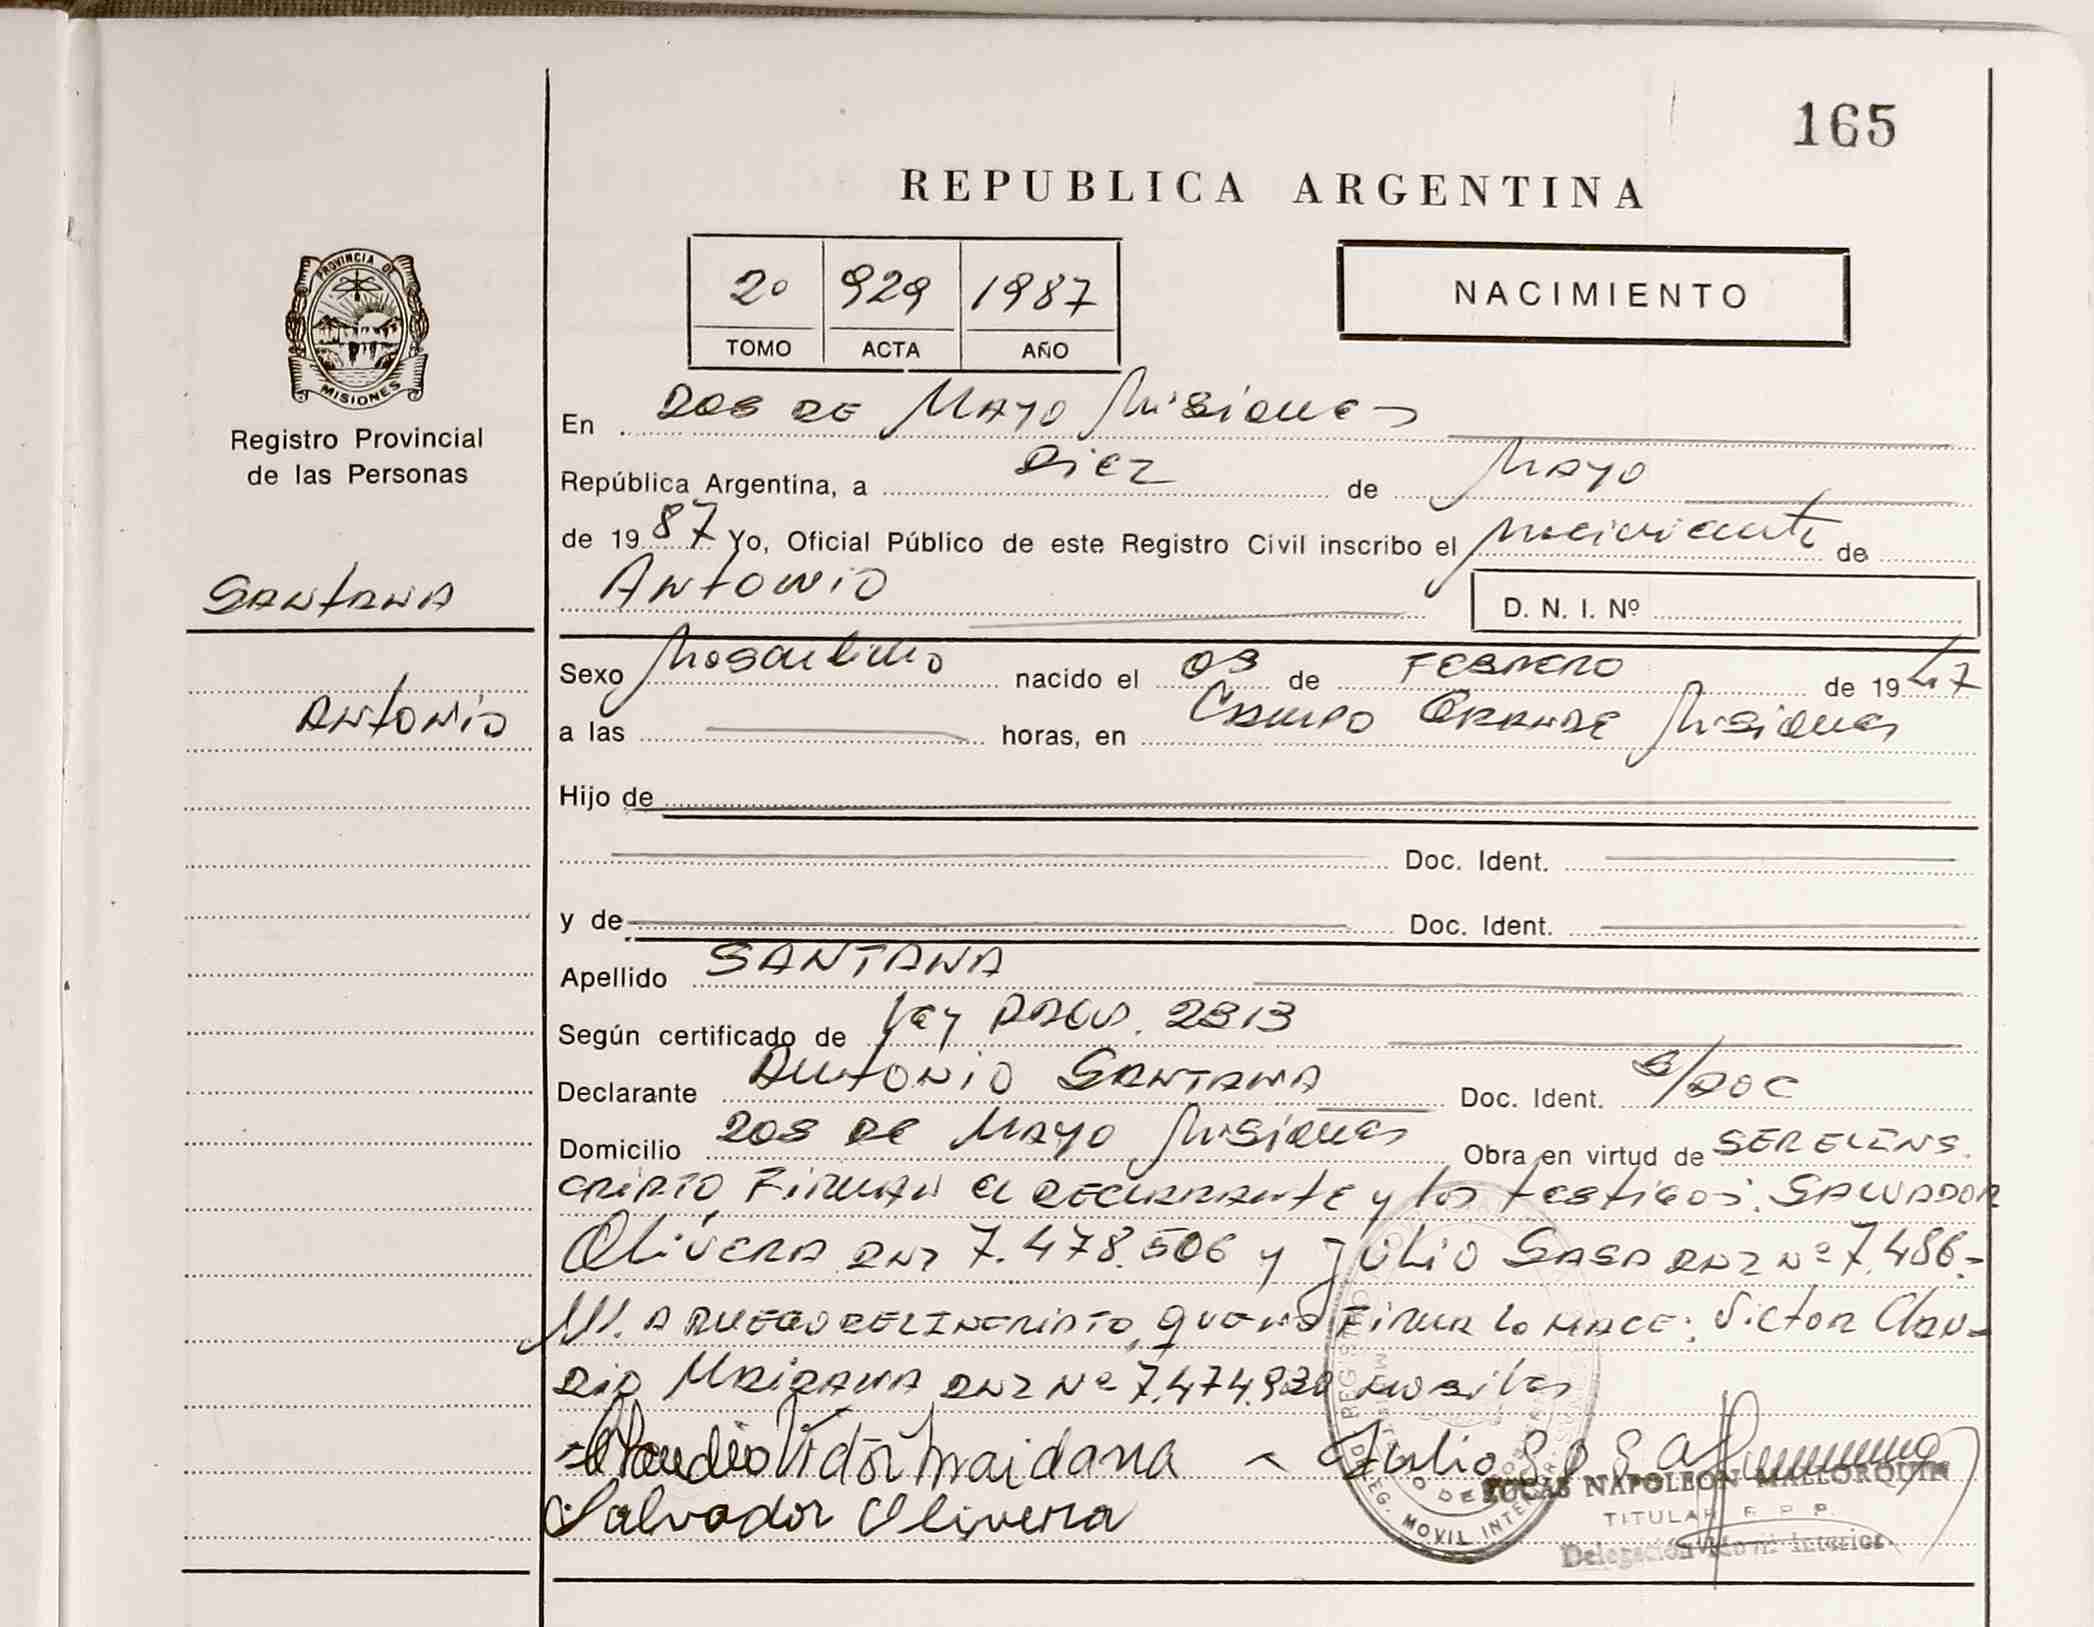 165
REPUBLICA ARGENTINA
2º 929 1987
TOMO ACTA AÑO
NACIMIENTO
PROVINCIA DE
MISIONES
Registro Provincial
de las Personas
SANTANA
ANTONIO
En DOS DE MAYO Misiones
República Argentina, a Diez de Mayo
de 1987 Yo, Oficial Público de este Registro Civil inscribo el nacimiento de
ANTONIO D. N. I. Nº
Sexo Masculino nacido el 03 de FEBRERO de 1947
a las horas, en CAMPO GRANDE Misiones
Hijo de
Doc. Ident.
y de Doc. Ident.
Apellido SANTANA
Según certificado de Ley PROV. 2313
Declarante ANTONIO SANTANA Doc. Ident. S/DOC
Domicilio DOS DE MAYO Misiones Obra en virtud de SER EL INS.
CRIPTO FIRMAN el DECLARANTE y los testigos: SALVADOR
OLIVERA DNI 7.478.506 y JULIO SASA DNI Nº 7.486.-
111. A RUEGO DEL INCRIPTO, FIRMA LO HACE: Victor Clau-
DIO MAIDANA DNI Nº 7.474.930
Claudio Victor Maidana Julio Sosa
Salvador Olivera
LUCAS NAPOLEON MALLORQUIN
TITULAR R. P. P.
Delegación Móvil Interior